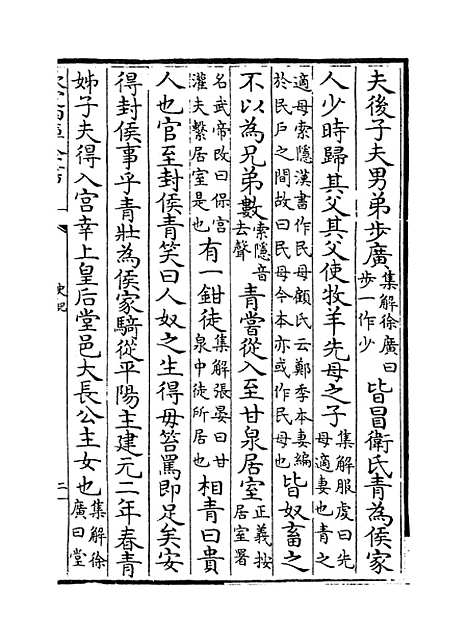 夫後子夫男弟步廣集解徐廣曰步一作少皆冒衛氏青為侯家
人少時歸其父其父使牧羊先母之子集解服虔曰先母適妻也青之
適母索隱漢書作民母顧氏云鄭季本妻編於民戶之間故曰民母今本亦或作民母也皆奴畜之
不以為兄弟數索隱音去聲青嘗從入至甘泉居室正義按居室署
名武帝改曰保宫灌夫繫居室是也有一鉗徒集解張晏曰甘泉中徒所居也相青曰貴
人也官至封侯青笑曰人奴之生得毋笞罵即足矣安
得封侯事乎青壯為侯家騎從平陽主建元二年春青
姊子夫得入宫幸上皇后堂邑大長公主女也集解徐廣曰堂